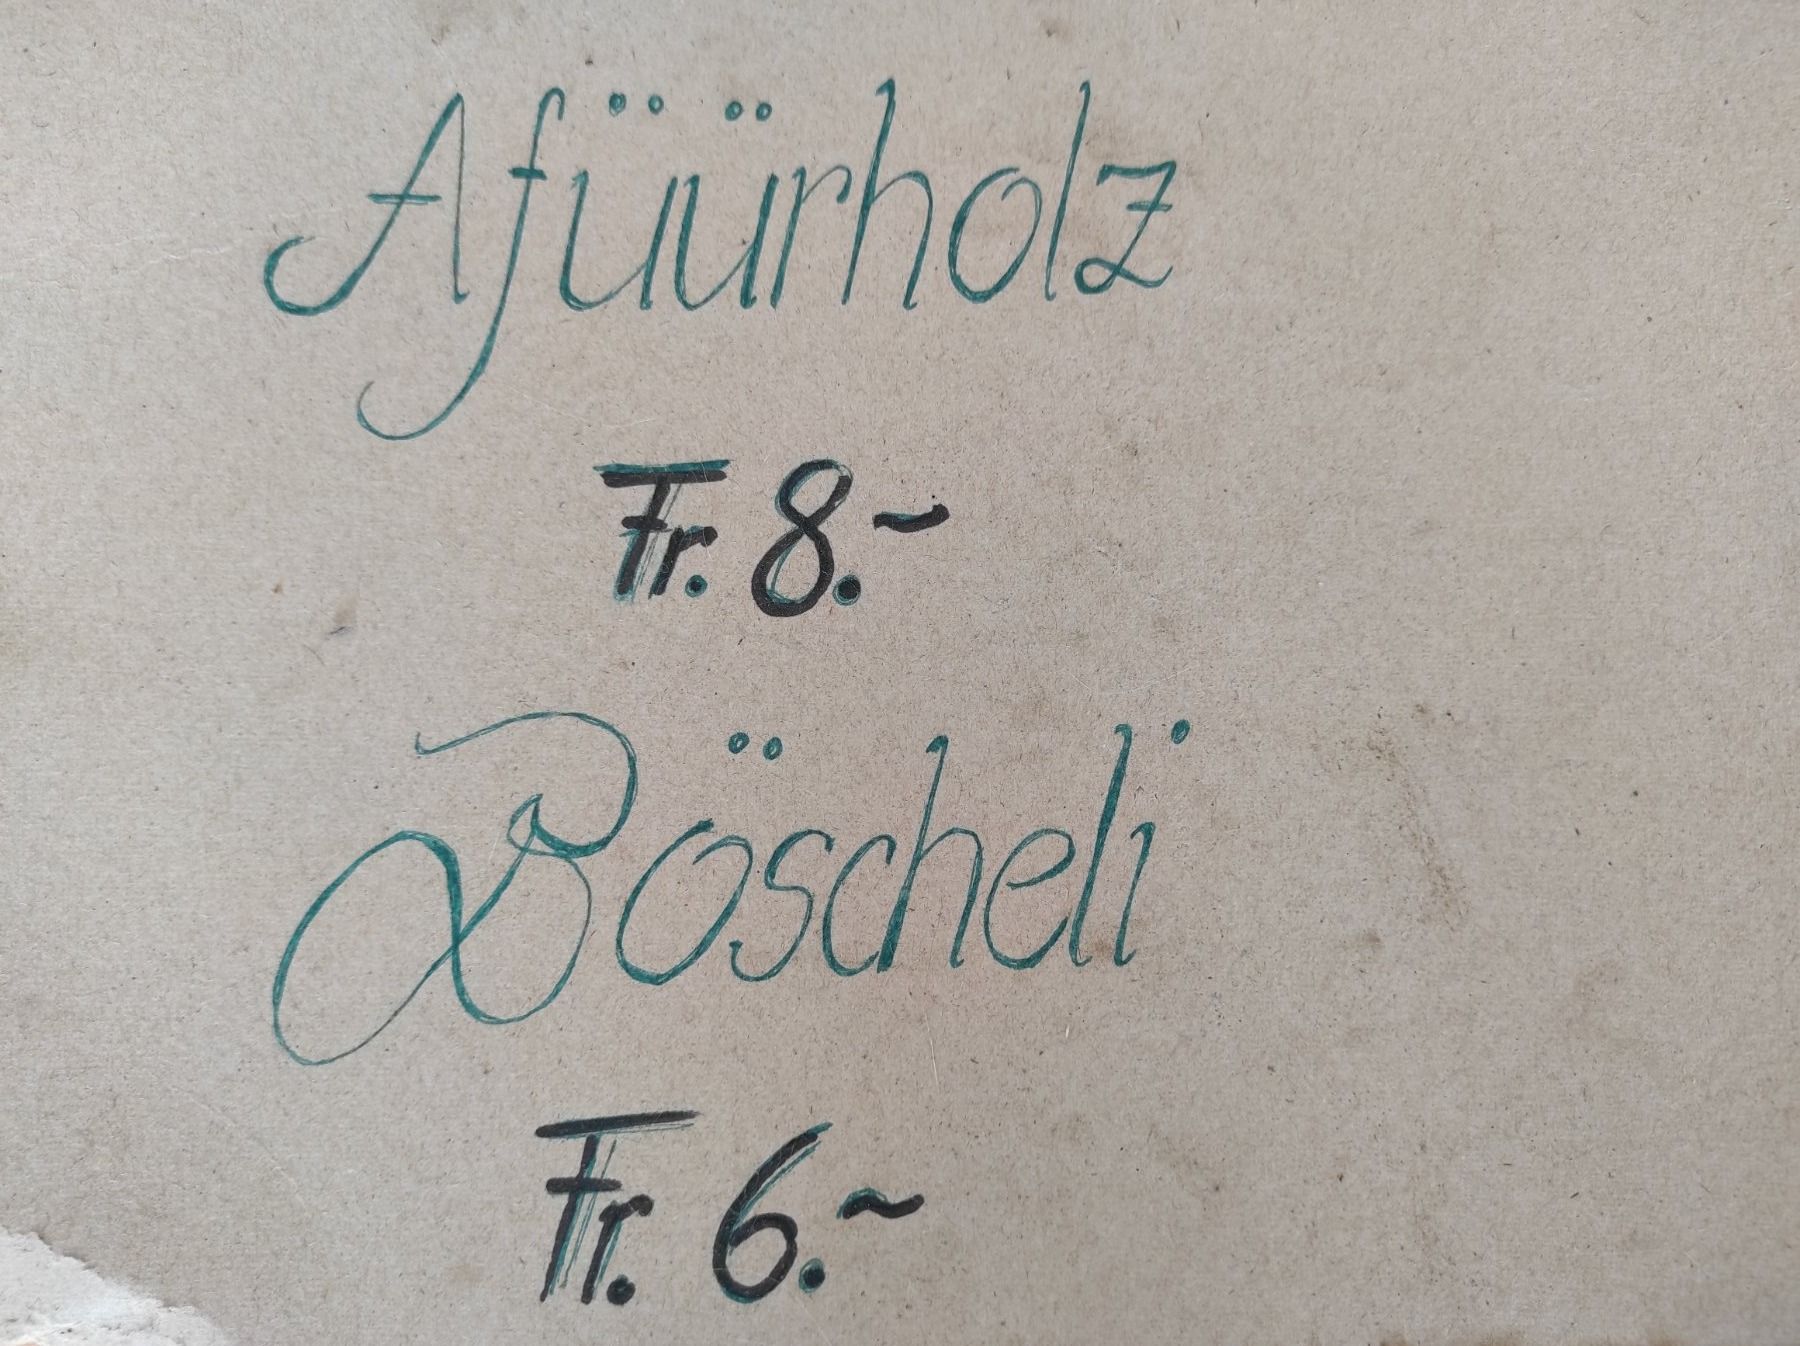 Afüürholz
Fr. 8.~
Böscheli
Fr. 6.~